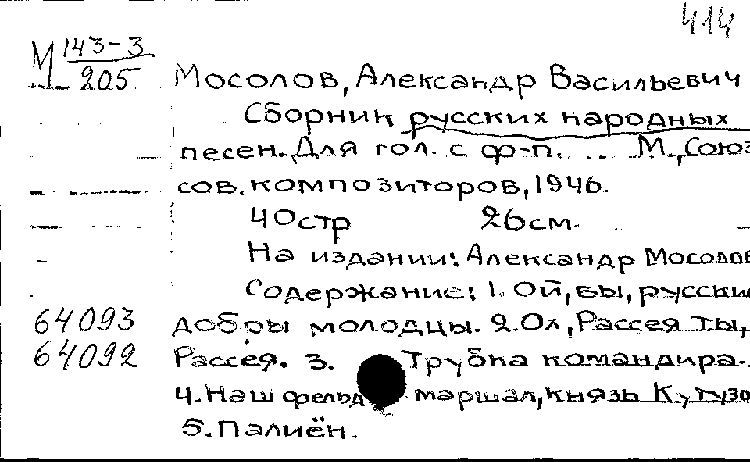 414
М 143-3
205
Мосолов, Александр Васильевич
Сборник русских народных
песен. Для гол. с ф-п. ... М., Союз
сов. композиторов, 1946.
40стр 26см.
На издании: Александр Мосолов
Содержание: 1. Ой, вы, русские
64093 добры молодцы. 2. Ол, Рассея ты,
64092 Рассея. 3. Трубка командира.
4. Наш фельдмаршал, князь Кутузо
5. Палиён.